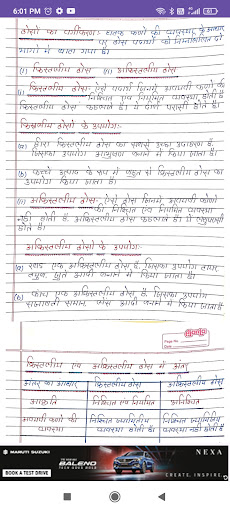 6:01 PM
ठोसों का वर्गीकरण:- घटक कणों की व्यवस्था के आधार
पर ठोस पदार्थों को निम्नलिखित दो
भागों में बाँटा गया है।
(i) क्रिस्टलीय ठोस (ii) अक्रिस्टलीय ठोस
(i) क्रिस्टलीय ठोस:- ऐसे पदार्थ जिनमें अवयवी कणों की
निश्चित एवं नियमित व्यवस्था होती है
क्रिस्टलीय ठोस कहलाते हैं। ये
क्रिस्टलीय ठोसों के उपयोग:-
(a) हीरा क्रिस्टलीय ठोस का सबसे अच्छा उदाहरण है,
जिसका उपयोग आभूषण बनाने में किया जाता है।
(b) कच्चे पदार्थ के रूप में बहुत से क्रिस्टलीय ठोस का
उपयोग किया जाता है।
(ii) अक्रिस्टलीय ठोस:- ऐसे ठोस जिनमें अवयवी कणों
की निश्चित एवं नियमित व्यवस्था
नहीं होती है अक्रिस्टलीय ठोस कहलाते हैं। ये
होते हैं।
अक्रिस्टलीय ठोसों के उपयोग:-
(a) रबड़ एक अक्रिस्टलीय ठोस है, जिसका उपयोग टायर,
जूते आदि बनाने में किया जाता है।
(b) काँच एक अक्रिस्टलीय ठोस है, जिसका उपयोग
सजावटी सामान, लेंस आदि बनाने में किया जाता है।
Page No.
Date
क्रिस्टलीय एवं अक्रिस्टलीय ठोस में अंतर
अंतर का आधार क्रिस्टलीय ठोस अक्रिस्टलीय ठोस
आकृति निश्चित एवं नियमित अनिश्चित
अवयवी कणों की निश्चित ज्यामितीय निश्चित ज्यामितीय
व्यवस्था व्यवस्था होती है। व्यवस्था नहीं होती है
MARUTI SUZUKI
NEXA
BALENO
BOOK A TEST DRIVE
CREATE. INSPIRE.